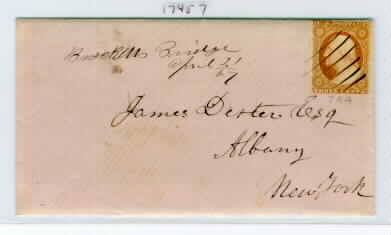 17457
Brocketts Bridge
April 21
James Dexter Esq
Albany
New York